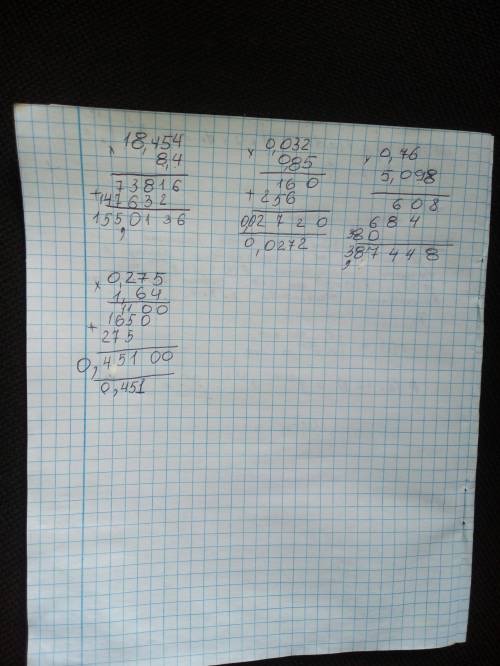 × 18,454
8,4
73816
+ 147632
155,0136
× 0,032
0,85
160
+ 256
0,02720
0,0272
× 0,76
5,098
608
684
380
3,87448
× 0,275
1,64
1100
+ 1650
275
0,45100
0,451